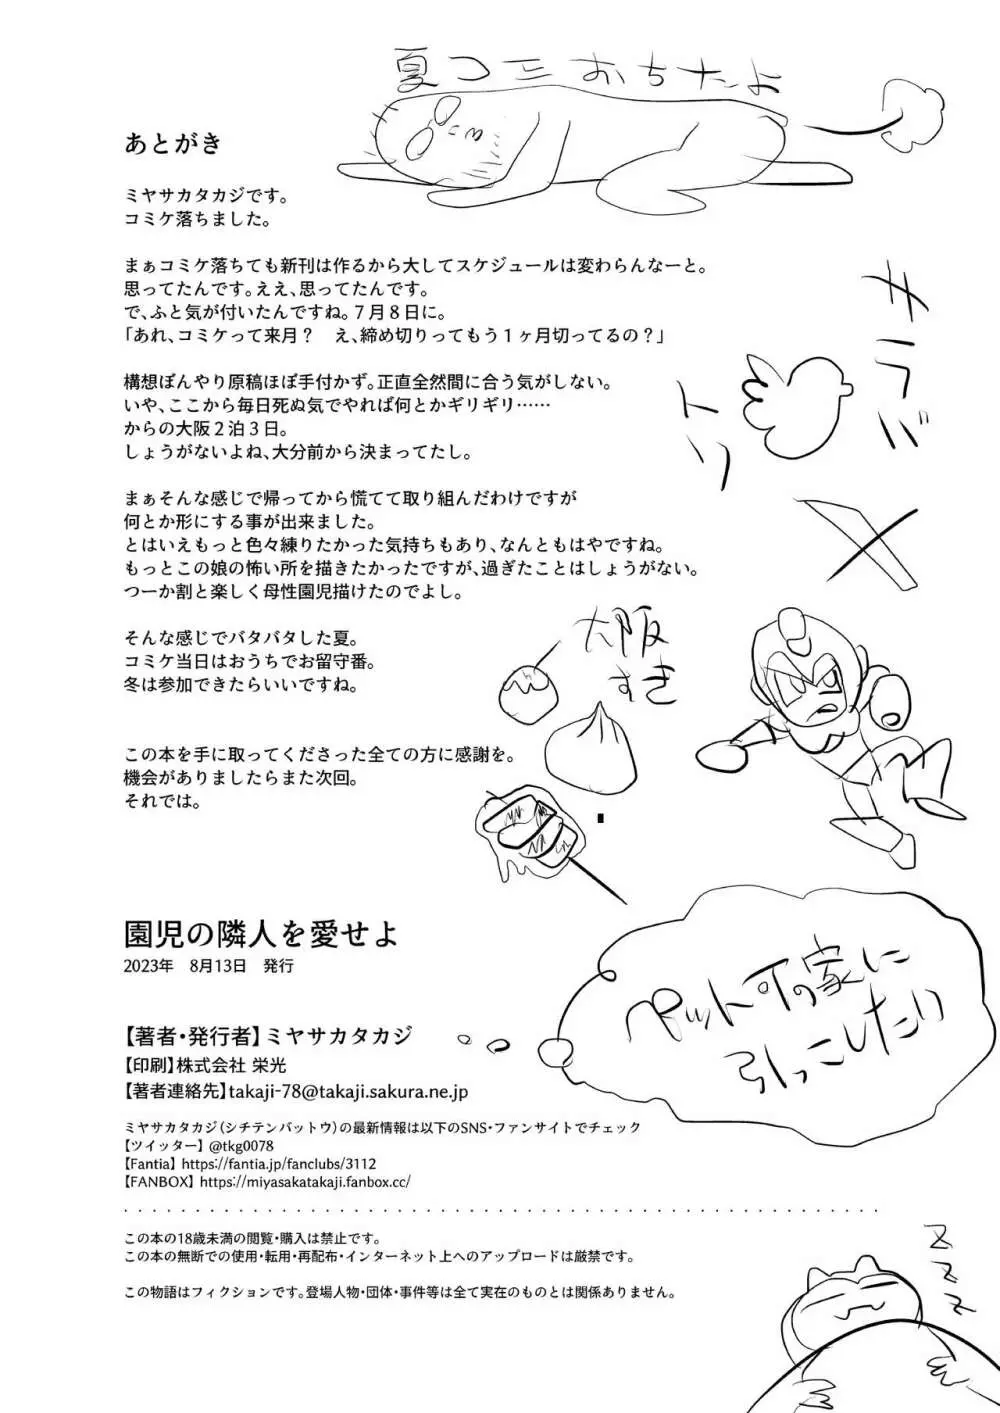 夏コミおちたよ
あとがき
ミヤサカタカジです。
コミケ落ちました。
まぁコミケ落ちても新刊は作るから大してスケジュールは変わらんなーと。
思ってたんです。ええ、思ってたんです。
で、ふと気が付いたんですね。7月8日に。
「あれ、コミケって来月？　え、締め切りってもう1ヶ月切ってるの？」
構想ぼんやり原稿ほぼ手付かず。正直全然間に合う気がしない。
いや、ここから毎日死ぬ気でやれば何とかギリギリ……
からの大阪2泊3日。
しょうがないよね、大分前から決まってたし。
サラバ
トリ
まぁそんな感じで帰ってから慌てて取り組んだわけですが
何とか形にする事が出来ました。
とはいえもっと色々練りたかった気持ちもあり、なんともはやですね。
もっとこの娘の怖い所を描きたかったですが、過ぎたことはしょうがない。
つーか割と楽しく母性園児描けたのでよし。
大阪
すき
そんな感じでバタバタした夏。
コミケ当日はおうちでお留守番。
冬は参加できたらいいですね。
この本を手に取ってくださった全ての方に感謝を。
機会がありましたらまた次回。
それでは。
園児の隣人を愛せよ
2023年　8月13日　発行
ペット可の家に
引っこしたい
【著者・発行者】ミヤサカタカジ
【印刷】株式会社 栄光
【著者連絡先】takaji-78@takaji.sakura.ne.jp
ミヤサカタカジ（シチテンバットウ）の最新情報は以下のSNS・ファンサイトでチェック
【ツイッター】 @tkg0078
【Fantia】 https://fantia.jp/fanclubs/3112
【FANBOX】 https://miyasakatakaji.fanbox.cc/
この本の18歳未満の閲覧・購入は禁止です。
この本の無断での使用・転用・再配布・インターネット上へのアップロードは厳禁です。
この物語はフィクションです。登場人物・団体・事件等は全て実在のものとは関係ありません。
ZZZZ